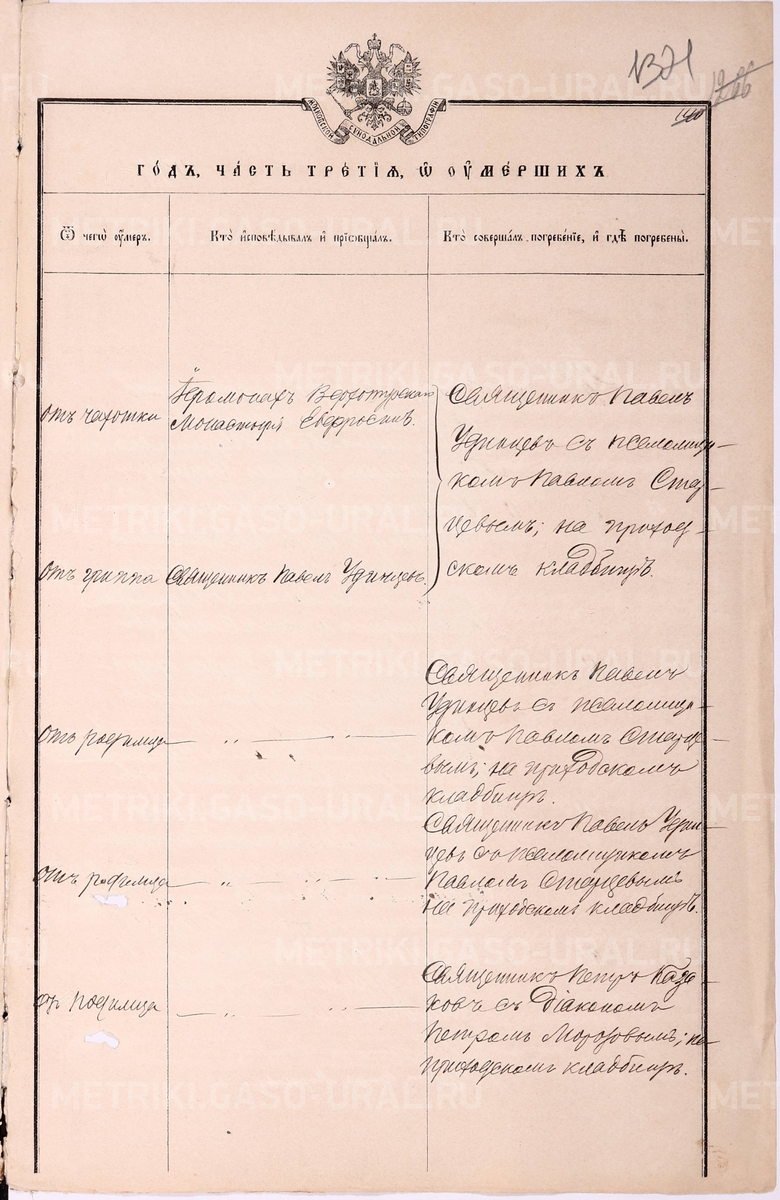 1371
МОСКОВСКОЙ СѴНОДАЛЬНОЙ ТИПОГРАФІИ
ГОДЪ, ЧАСТЬ ТРЕТІѦ, Ѡ ОУМЕРШИХЪ
Ѿ чегѡ оумеръ.
Кто исповѣдывалъ и прїобщалъ.
Кто совершалъ погребенїе, и гдѣ погребены.
отъ чахотки
Іеромонахъ Верхотурскаго
Монастыря Евфросинъ.
Священникъ Павелъ
Удинцевъ съ псаломщи-
комъ Павломъ Стар-
цевымъ; на приход-
скомъ кладбищѣ.
отъ гриппа
Священникъ Павелъ Удинцевъ.
отъ родимца
Священникъ Павелъ
Удинцевъ съ псаломщи-
комъ Павломъ Старце-
вымъ; на приходскомъ
кладбищѣ.
отъ родимца
Священникъ Павелъ Удин-
цевъ съ псаломщикомъ
Павломъ Старцевымъ
на приходскомъ кладбищѣ.
отъ родимца
Священникъ Петръ Каза-
ковъ съ Діакономъ
Петромъ Морозовымъ; на
приходскомъ кладбищѣ.
METRIKI.GASO-URAL.RU